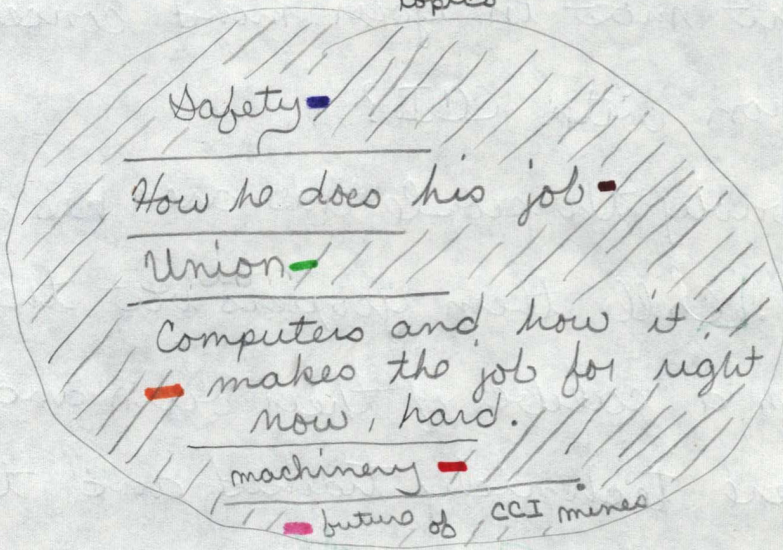 topics
Safety
How he does his job
Union
Computers and how it
makes the job for right
now, hard.
machinery
future of CCI mines